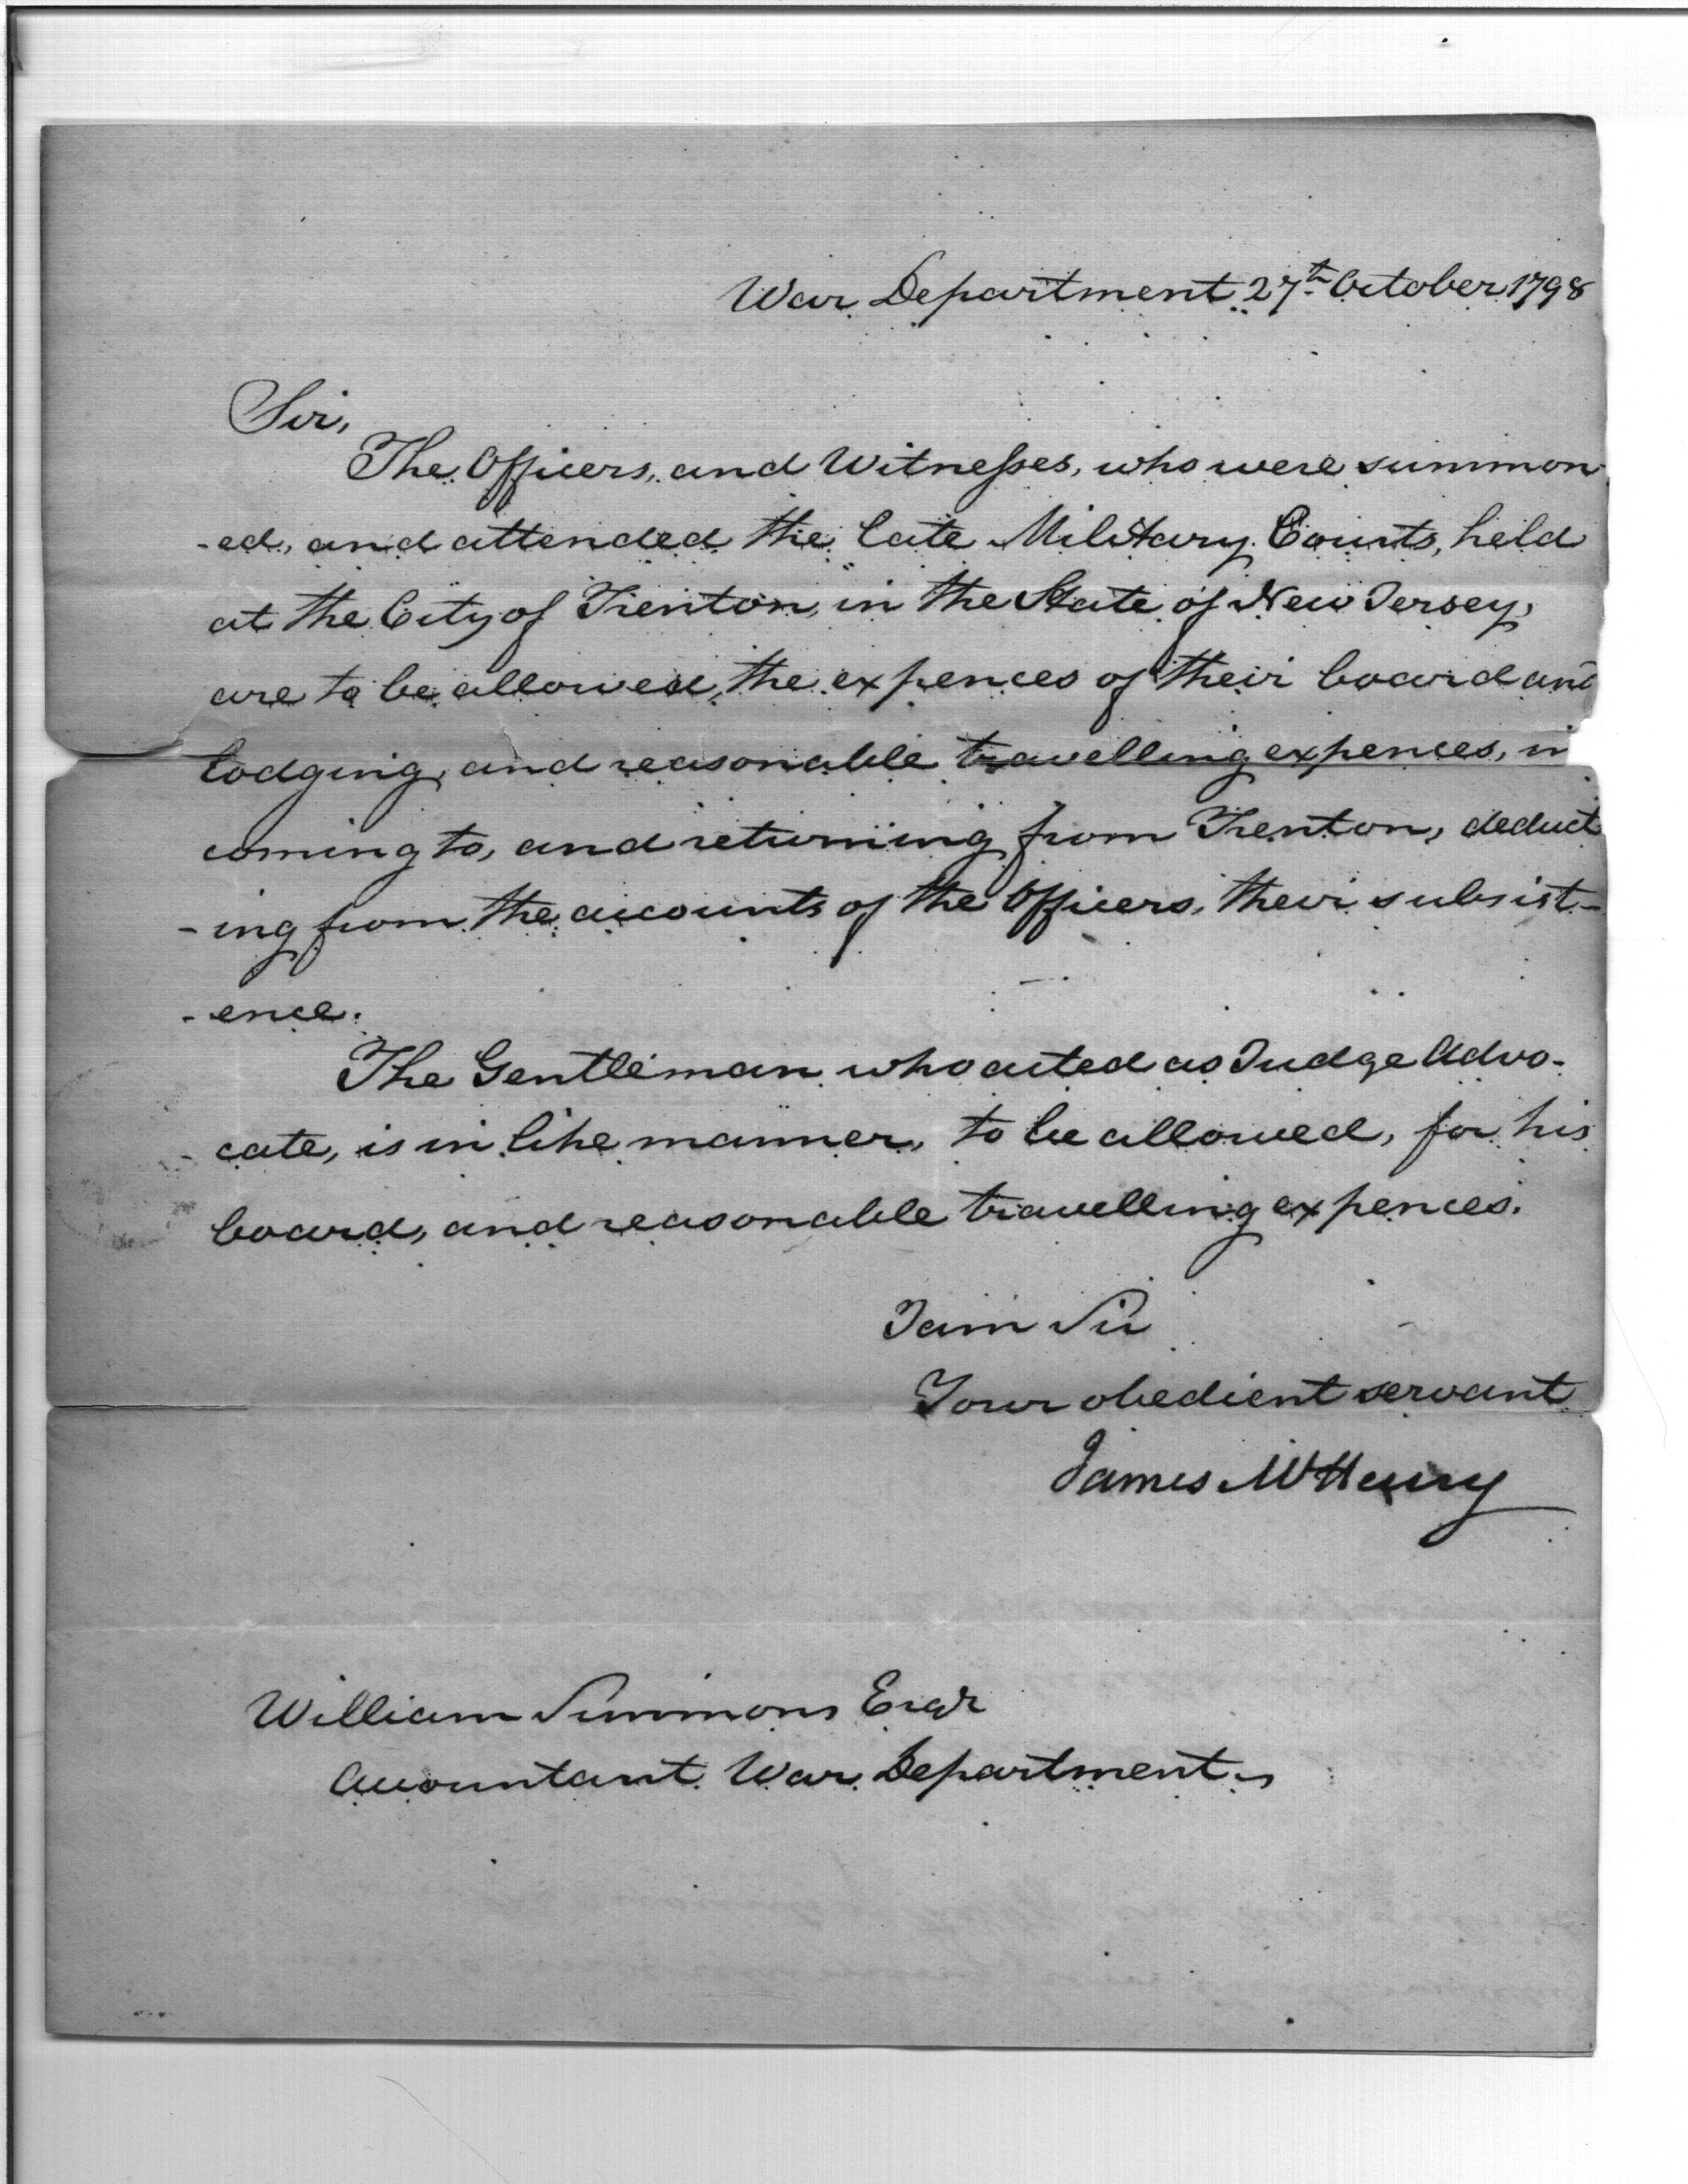 War Department 27th October 1798
Sir,
The Officers, and Witnesses, who were summon
-ed, and attended the late Military Courts, held
at the City of Trenton, in the State of New Jersey,
are to be allowed, the expences of their board and
lodging, and reasonable travelling expences, in
coming to, and returning from Trenton, deduct
-ing from the accounts of the Officers, their subsist-
-ence.
The Gentleman who acted as Judge Advo-
-cate, is in like manner, to be allowed, for his
board, and reasonable travelling expences.
I am Sir
Your obedient servant
James McHenry
William Simmons Esqr
Accountant War Department